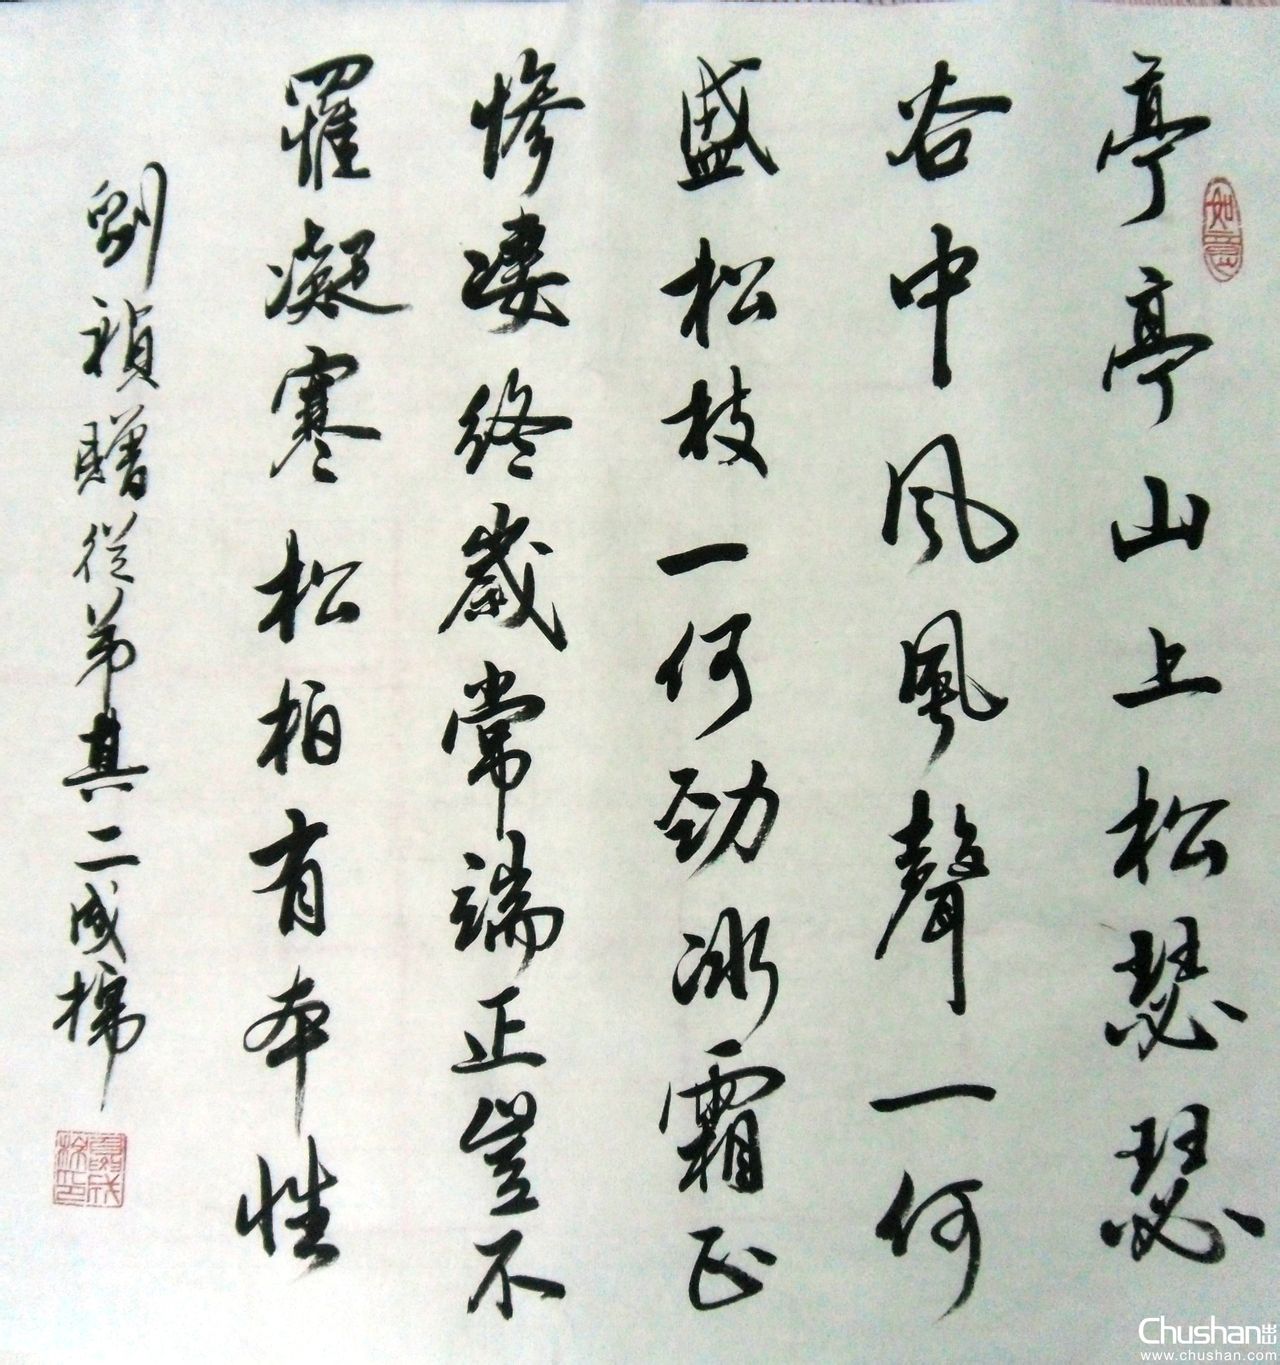 亭亭山上松瑟瑟
谷中风風聲一何
盛松枝一何勁冰霜正
慘凄终歲常端正豈不
罹凝寒松柏有本性
劉禎贈從弟其二成
如意
Chushan出
www.chushan.com